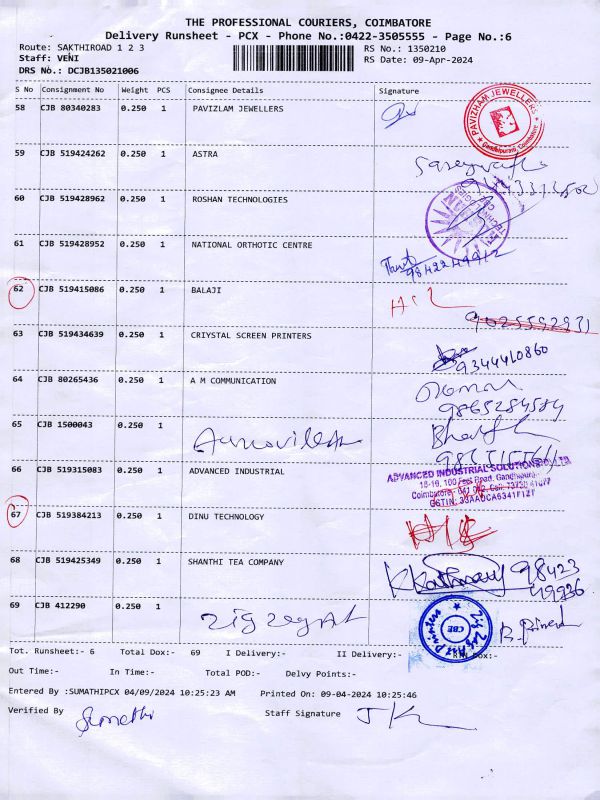 THE PROFESSIONAL COURIERS, COIMBATORE
Delivery Runsheet - PCX - Phone No.:0422-3505555 - Page No.:6
Route: SAKTHIROAD 1 2 3 RS No.: 1350210
Staff: VENI RS Date: 09-Apr-2024
DRS No.: DCJB135021006
S No Consignment No Weight PCS Consignee Details Signature
58 CJB 80340283 0.250 1 PAVIZLAM JEWELLERS
PAVIZHAM JEWELLERS
Gandhipuram Coimbatore
59 CJB 519424262 0.250 1 ASTRA
60 CJB 519428962 0.250 1 ROSHAN TECHNOLOGIES
61 CJB 519428952 0.250 1 NATIONAL ORTHOTIC CENTRE
9842249912
62 CJB 519415086 0.250 1 BALAJI
9025592931
63 CJB 519434639 0.250 1 CRIYSTAL SCREEN PRINTERS
9344410860
64 CJB 80265436 0.250 1 A M COMMUNICATION
9865284584
65 CJB 1500043 0.250 1
66 CJB 519315083 0.250 1 ADVANCED INDUSTRIAL
ADVANCED INDUSTRIAL SOLUTIONS
67 CJB 519384213 0.250 1 DINU TECHNOLOGY
68 CJB 519425349 0.250 1 SHANTHI TEA COMPANY
98423
49936
69 CJB 412290 0.250 1
CBE
Tot. Runsheet:- 6 Total Dox:- 69 I Delivery:- II Delivery:-
Out Time:- In Time:- Total POD:- Delvy Points:-
Entered By :SUMATHIPCX 04/09/2024 10:25:23 AM Printed On: 09-04-2024 10:25:46
Verified By Sumathi Staff Signature